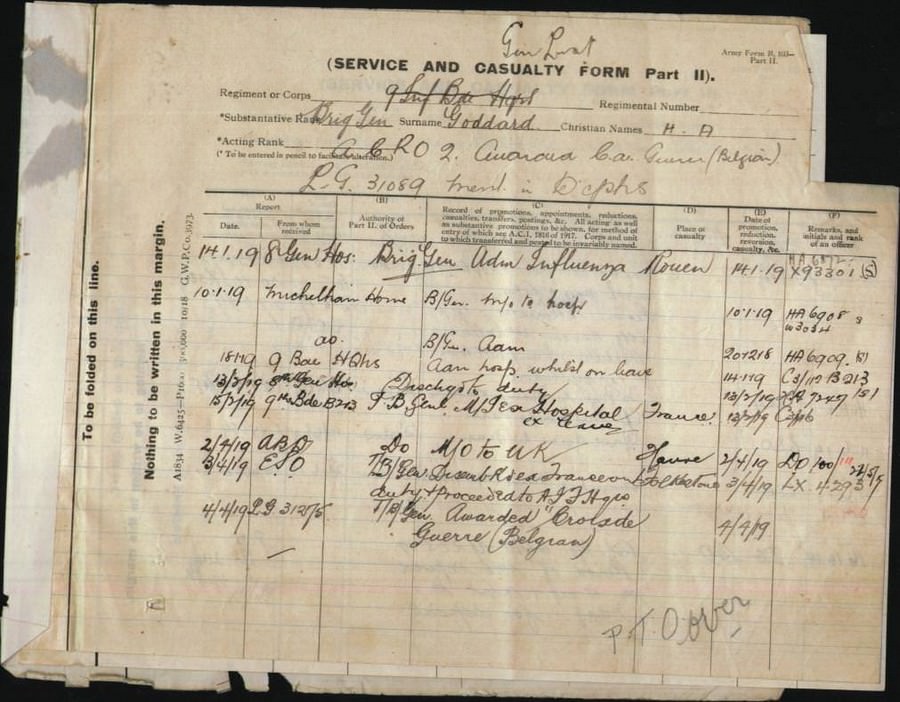 Gen List
Army Form B. 103—
Part II.
(SERVICE AND CASUALTY FORM Part II).
Regiment or Corps 9 Inf Bde Hqrs Regimental Number
*Substantive Rank Brig Gen Surname Goddard. Christian Names H. A
*Acting Rank
(* To be entered in pencil to facilitate alteration.)
A C R O 2. Awarded C. de Guerre (Belgian)
L.G. 31089 Ment. in D'cphs
(A) (B) (C) (D) (E) (F)
Report
Date. From whom received
Authority of Part II. of Orders
Record of promotions, appointments, reductions, casualties, transfers, postings, &c. All acting as well as substantive promotions to be shown, for method of entry of which see A.C.I. 1816 of 1917. Corps and unit to which transferred and posted to be invariably named.
Place of casualty
Date of promotion, reduction, reversion, casualty, &c.
Remarks, and initials and rank of an officer
14.1.19 8 Gen Hos: Brig Gen Adm Influenza Rouen 14.1.19 X93301 (S)
10.1.19 Michelham Home B/Gen. to hosp 10.1.19 HA 6908
W3034
do. B/Gen. Adm
9 Bde HQrs Adm hosp. whilst on leave HA 6909.
13/3/19 8th Gen Hos Dischgd to duty
15/3/19 9th Bde B213 T/B. Genl. Hospital France 13/3/19
ex leave
2/4/19 ABD Do M/O to UK Havre 2/4/19 DO 100
3/4/19 E.S.O T/B/Gen Disemb Folkestone 3/4/19 LX 4293
duty & Proceeded to A.I.F Hqrs
4/4/19 LG 31275 T/B/Gen. Awarded "Croix de
Guerre (Belgian) 4/4/19
P.T. Over
To be folded on this line.
Nothing to be written in this margin.
A1834 W.6425—P1600 10/18 G.W.P.Co.3973.